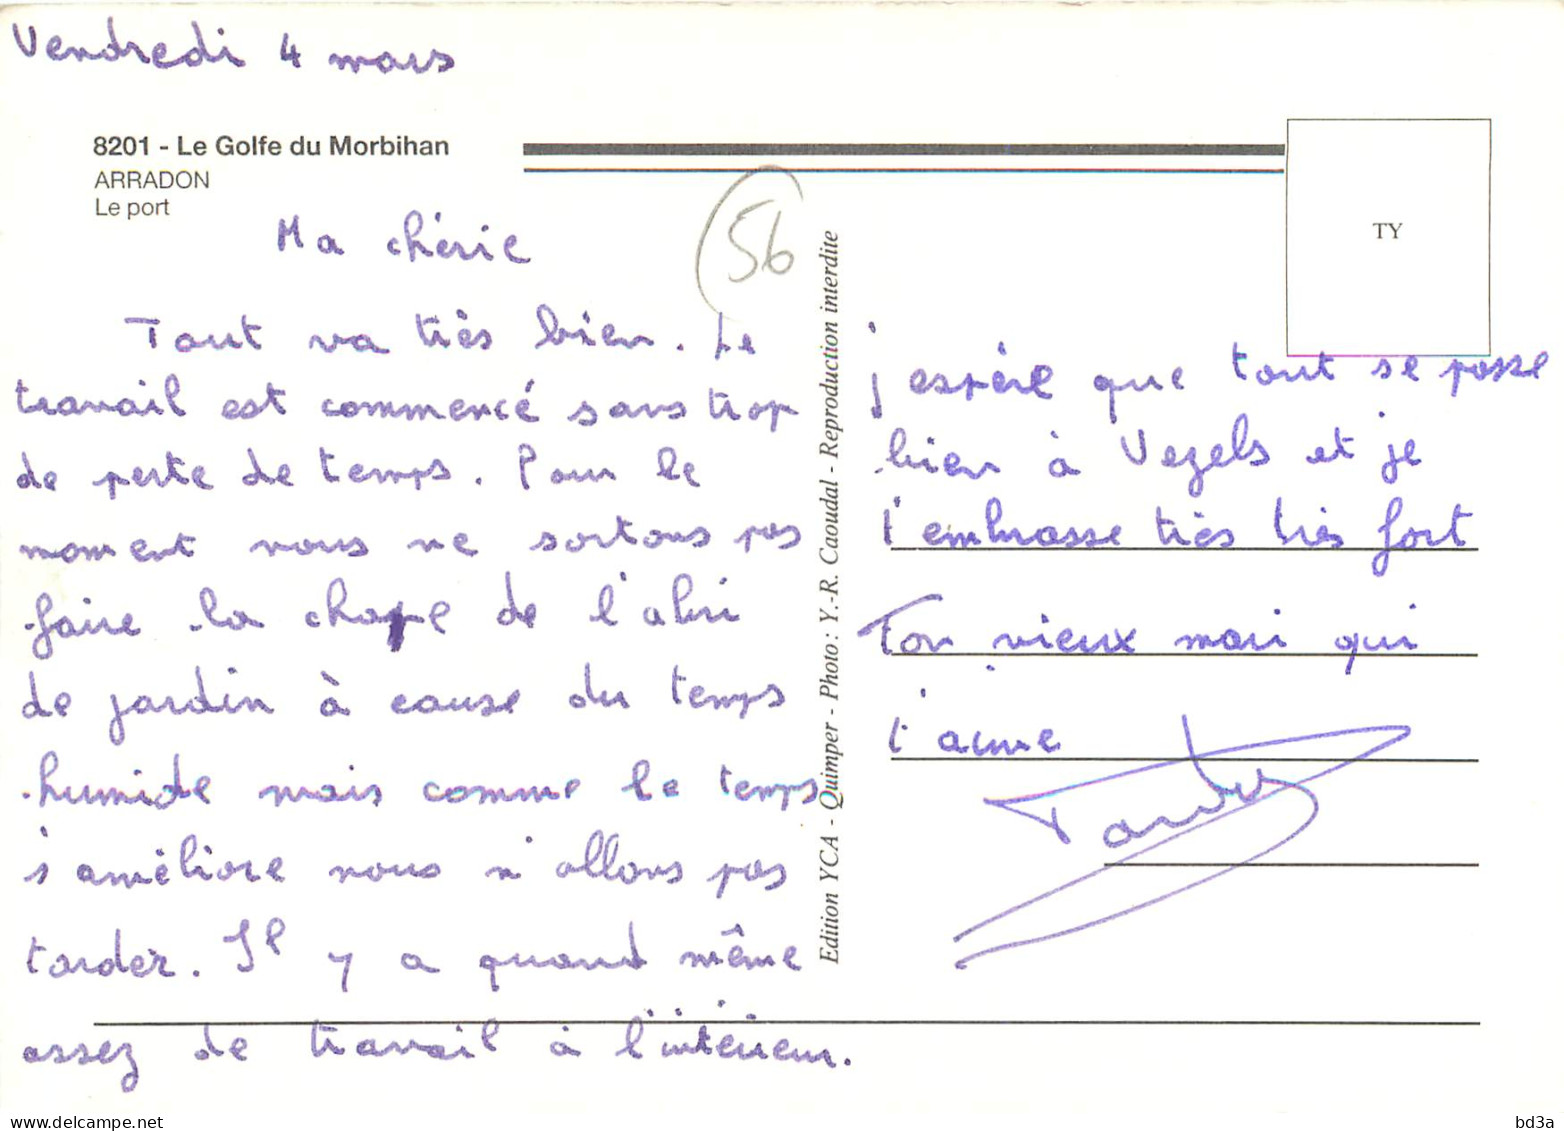 Vendredi 4 mars
8201 - Le Golfe du Morbihan
ARRADON
Le port
TY
56
Ma chérie
Tout va très bien. Le
travail est commencé sans trop
de perte de temps. Pour le
moment nous ne sortons pas
faire la chape de l'abri
de jardin à cause du temps
humide mais comme le temps
s'améliore nous n'allons pas
tarder. Il y a quand même
assez de travail à l'intérieur.
Edition YCA - Quimper - Photo : Y.-R. Caoudal - Reproduction interdite
j'espère que tout se passe
bien à Vezels et je
t'embrasse très très fort
Ton vieux mari qui
t'aime
delcampe.net
bd3a